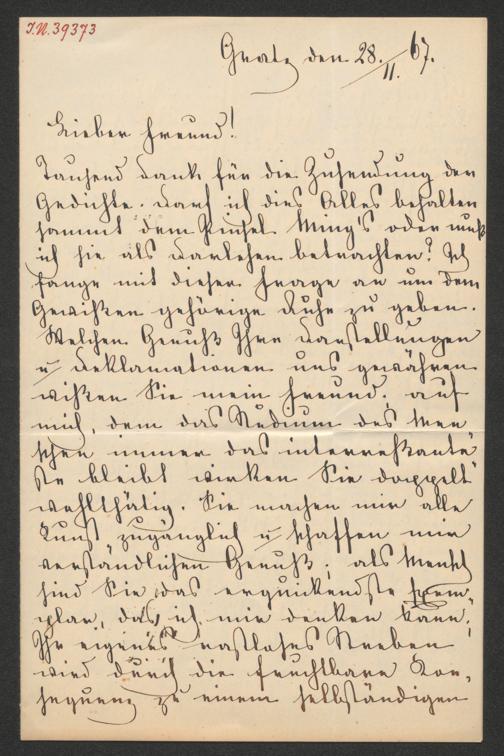 I.N. 39373
Gratz den 28./11. 67.
Lieber Freund!
Tausend Dank für die Zusendung der
Gedichte. Darf ich dies Alles behalten
sammt dem Pinsel Ming's oder muß
ich sie als Darlehen betrachten? Ich
fange mit dieser Frage an um dem
Gewissen gehörige Ruhe zu geben.
Welchen Genuß Ihre Darstellungen
u Deklamationen uns gewähren
wissen Sie mein Freund. auf
mich, dem das Studium des Men
schen immer das interressante
ste bleibt wirken Sie doppelt
wohlthätig. Sie machen mir alle
Kunst zugänglich u schaffen mir
verständlichen Genuß; als Mensch
sind Sie das erquickendste Exem„
plar, das ich mir denken kann,
Ihr eigenes rastloses Streben
wird durch die fruchtbare Con„
sequenz zu einem selbständigen